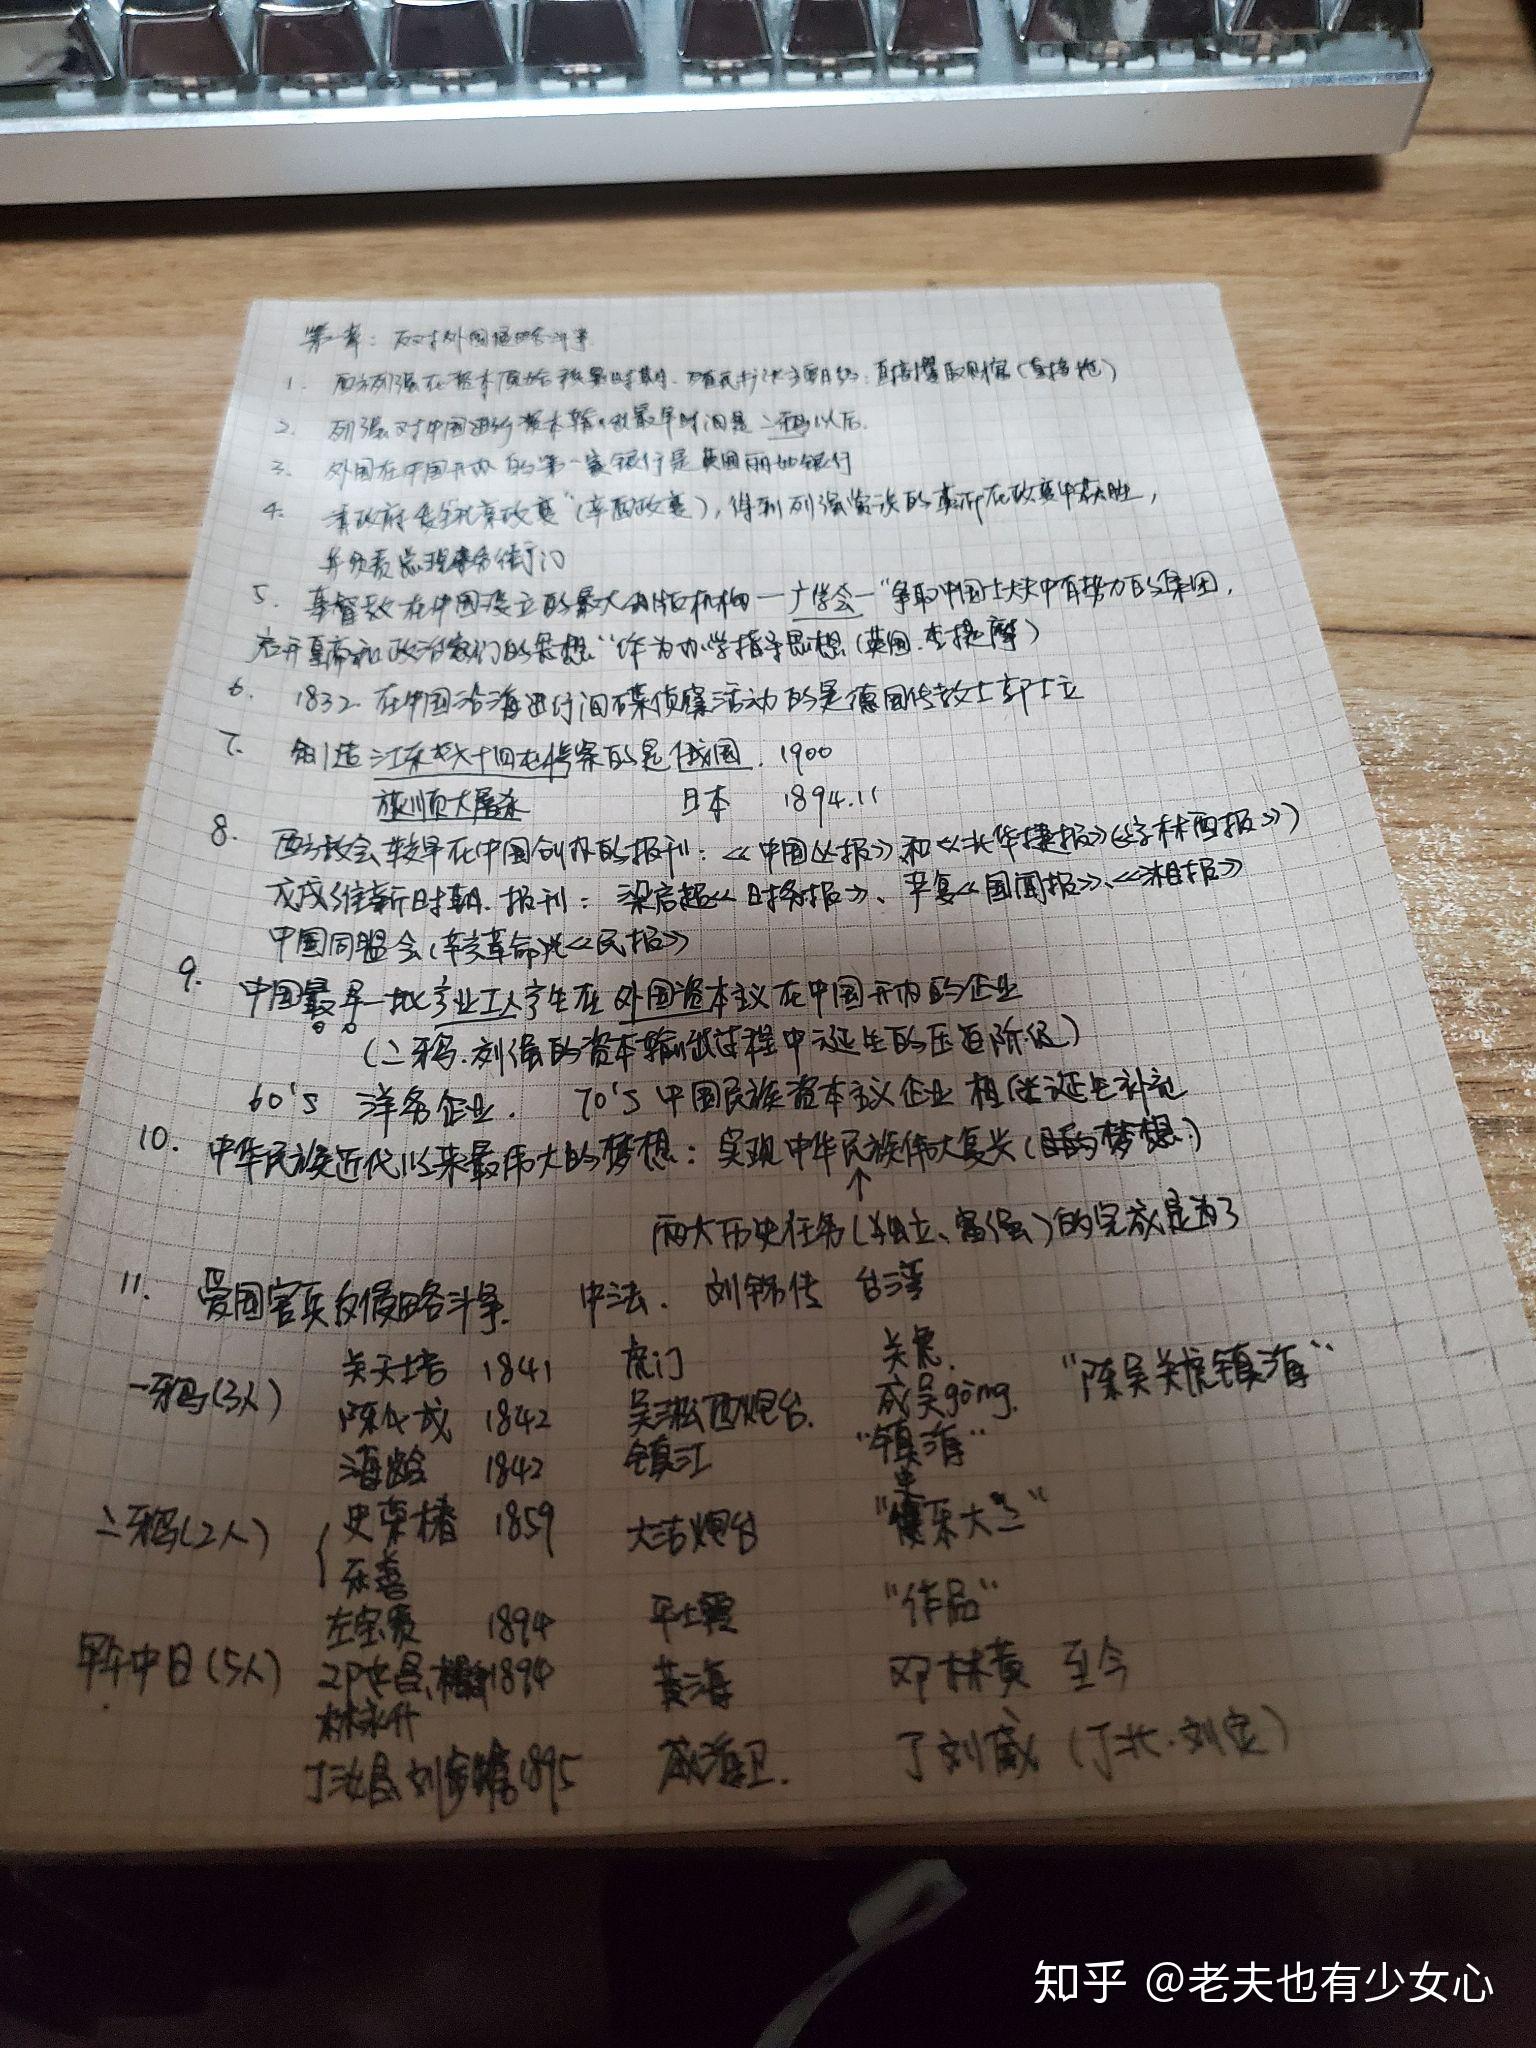 第一章：反对外国侵略斗争
1. 西方列强在资本原始积累时期，殖民扩张主要目的：直接攫取财富（直接抢）
2. 列强对中国进行资本输出最早时间是二鸦以后.
3. 外国在中国开办的第一家银行是英国丽如银行
4. 清政府发生"北京政变"（辛酉政变），得到列强赏识的奕䜣在政变中获胜，
并负责总理事务衙门
5. 基督教在中国设立的最大出版机构—广学会—"争取中国士大夫中有势力的集团，
启开皇帝和政治家们的思想"作为办学指导思想（英国.李提摩）
6. 1832.在中国沿海进行间谍侦察活动的是德国传教士郭士立
7. 制造江东六十四屯惨案的是俄国. 1900
旅顺大屠杀 日本 1894.11
8. 西方教会较早在中国创办的报刊：《中国丛报》和《北华捷报》《字林西报》）
戊戌维新时期.报刊：梁启超《时务报》、严复《国闻报》、《湘报》
中国同盟会（辛亥革命）《民报》
9. 中国最早一批产业工人产生在外国资本主义在中国开办的企业
（二鸦.列强的资本输出过程中诞生的压迫阶级）
60's 洋务企业. 70's 中国民族资本主义企业 相继诞生补充
10. 中华民族近代以来最伟大的梦想：实现中华民族伟大复兴（目的梦想）
↑
两大历史任务（独立、富强）的完成是为了
11. 爱国官兵反侵略斗争. 中法. 刘铭传 台湾
关天培 1841 虎门 关虎.
一鸦（3人） 陈化成 1842 吴淞西炮台. 成吴gong. "陈吴关虎镇海"
海龄 1842 镇江 "镇海"
二鸦（2人） 史荣椿 1859 大沽炮台 "史乐大"
乐善
左宝贵 1894 平壤 "作品"
甲午中日（5人） 邓世昌、1894 黄海 邓林黄 至今
林永升
丁汝昌、刘步蟾 1895 威海卫. 丁刘威（丁北.刘定）
知乎 @老夫也有少女心